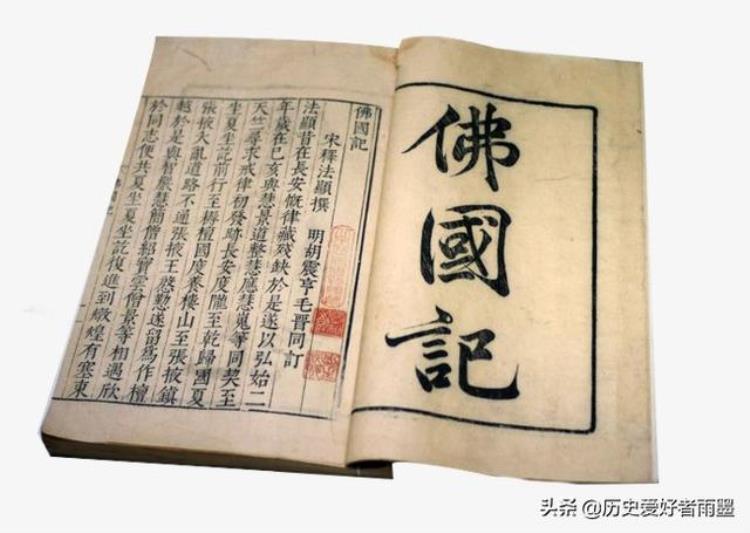 佛國記
佛國記
宋釋法顯撰 明胡震亨毛晉同訂
法顯昔在長安慨律藏殘缺於是遂以弘始二
年歲在已亥與慧景道整慧應慧嵬等同契至
天竺尋求戒律初發跡長安度隴至乾歸國夏
坐夏坐訖前行至耨檀國度養樓山至張掖鎮
張掖大亂道路不通張掖王慇懃遂留爲作檀
越於是與智嚴慧簡僧紹寶雲僧景等相遇欣
於同志便共夏坐夏坐訖復進到燉煌有塞東
头条 @历史爱好者雨墨